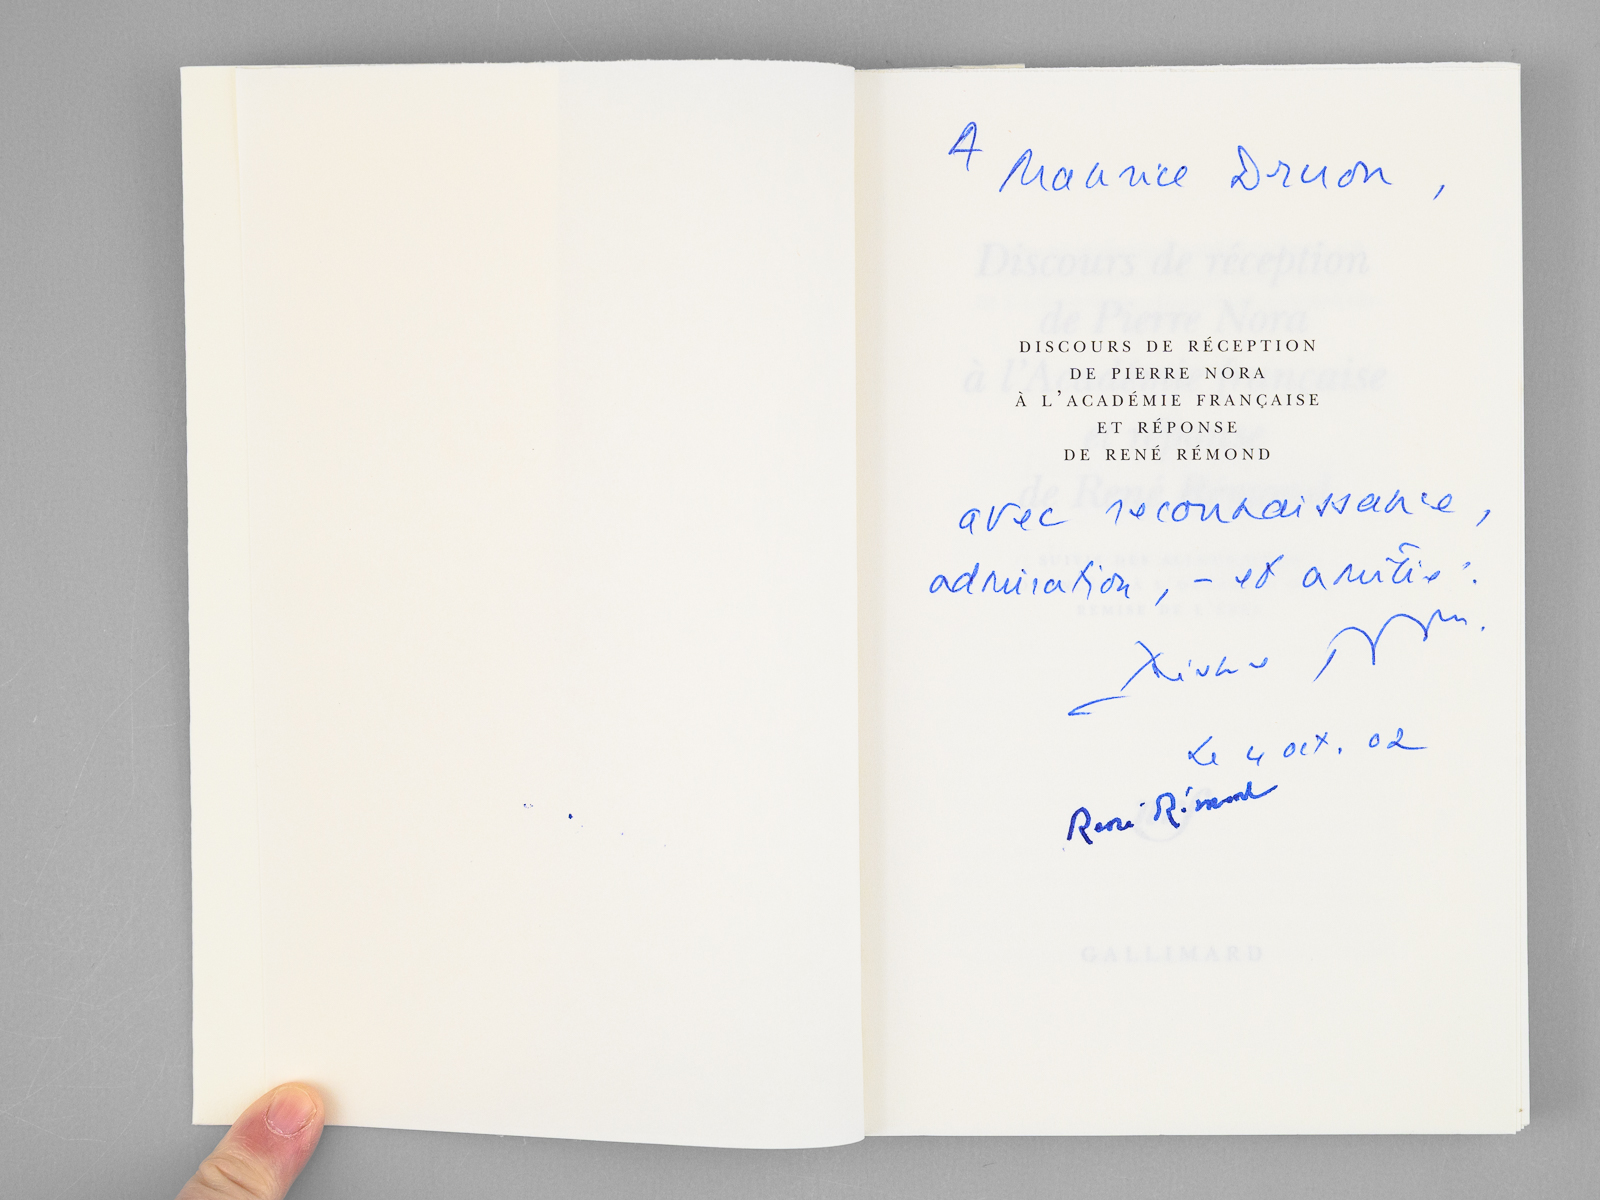 A Maurice Druon,
DISCOURS DE RÉCEPTION
DE PIERRE NORA
À L'ACADÉMIE FRANÇAISE
ET RÉPONSE
DE RENÉ RÉMOND
avec reconnaissance,
admiration, – et amitié.
Pierre Nora.
Le 4 oct. 02
René Rémond
GALLIMARD